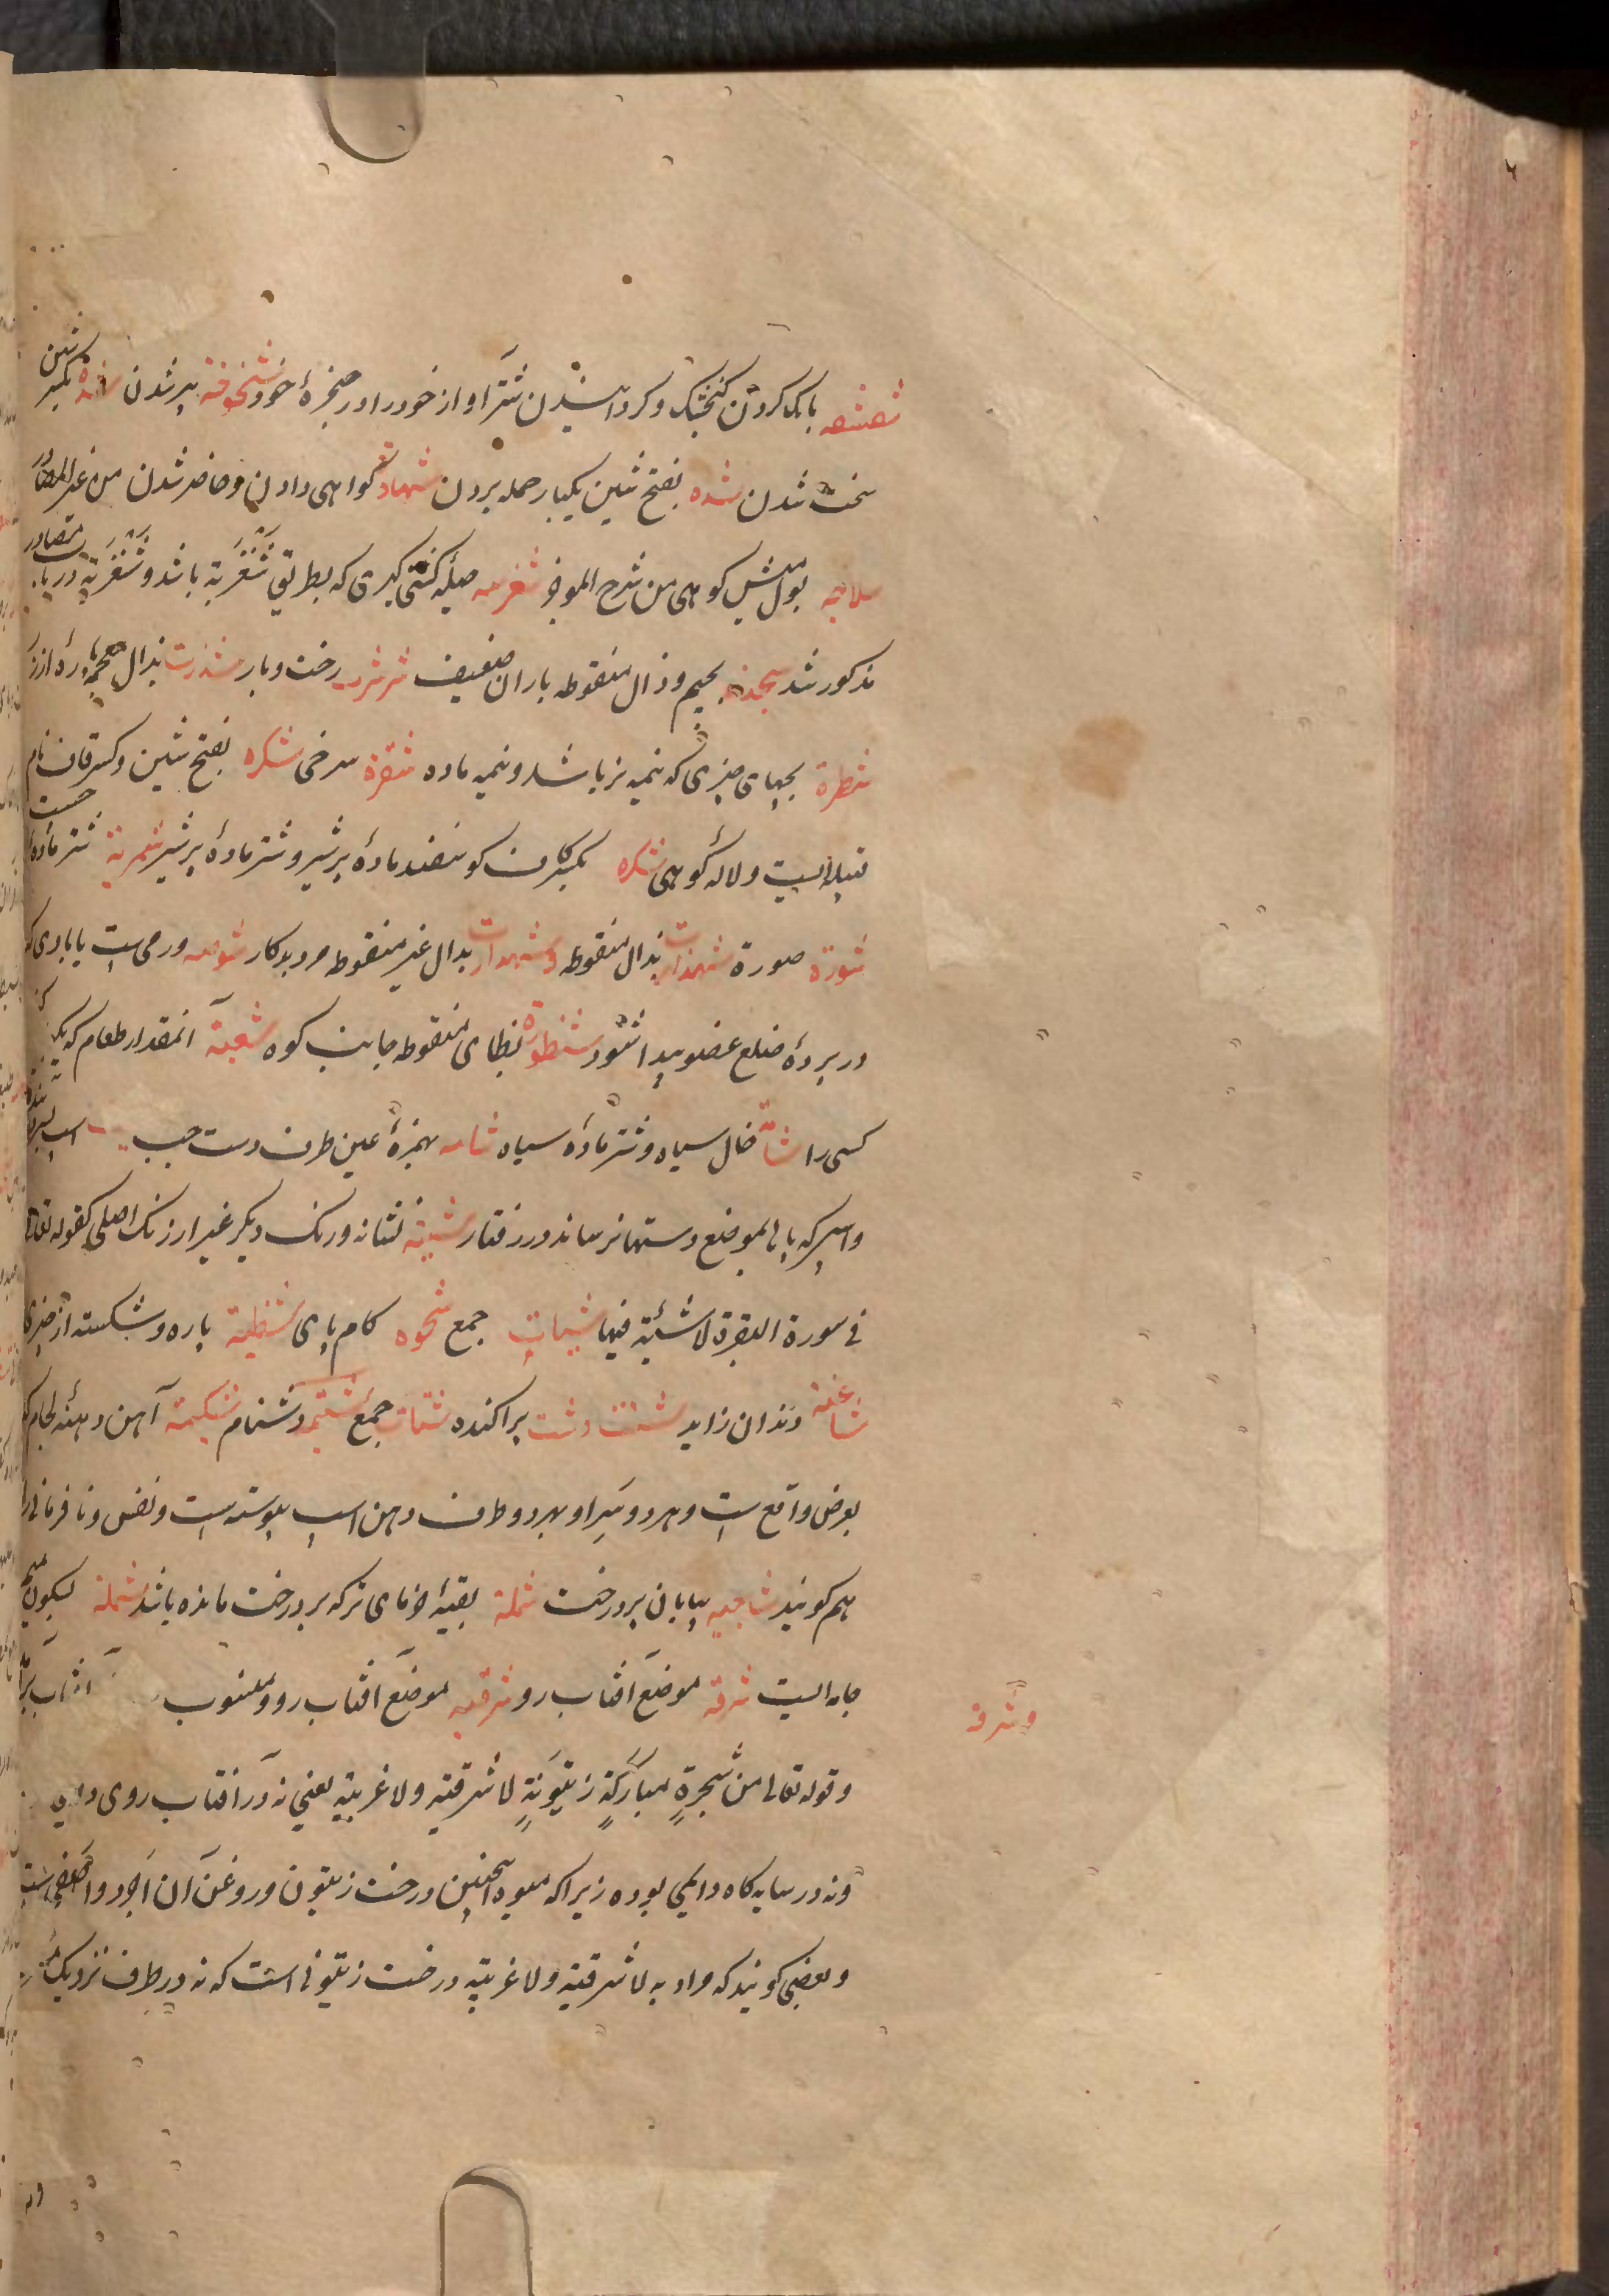 بانک کردن کنجشک و کردانیدن شتر آواز خود را در حنجرهٔ خود شیخوخة پیر شدن شدة بکسر شین
سخت شدن شده بفتح شین یکبار حمله بردن شهادة کواهی دادن و حاضر شدن من غیر المصادر
بول میش کوهی من شرح الموجز حیلهٔ کشتی کیری که بطریق شغربیة باشد و شغزبیة در باء مصادر
مذکور شد بجیم و ذال منقوطه باران ضعیف رخت و بار شذرت بذال معجمه پارهٔ از زر
شطرة بچهای چیزی که نیمه نر باشد و نیمه ماده شقرة سرخی شکره بفتح شین و کسر قاف نام
قبیله ایست و لالهٔ کوهی شکره بکسر کاف کوسفند مادهٔ پر شیر و شتر مادهٔ پر شیر شمریة شتر مادهٔ جست
شورة صورة شهذارت بذال منقوطه و شهدارت بدال غیر منقوطه مرد بدکار شوصه ورمی است یا بادی که
در پردهٔ ضلع عضو پیدا شود شنظوة بظای منقوطه جانب کوه شعبة آنمقدار طعام که یک
کسی را شأمة خال سیاه و شتر مادهٔ سیاه شامه بهمزهٔ عین طرف دست چپ اسب
و اسپی که پا بالموضع دستها نرساند در رفتار شیة نشانه و رنک دیکر غیر از رنک اصلی کقوله تعالی
فی سورة البقرة لا شیة فیها شیات جمع شحوه کام پای شظیة پاره و شکسته از چیزی
شاغیة دندان زاید شت پراکنده شتات جمع شتیمة دشنام شکیمة آهن دهنهٔ لجام که
بعرض واقع است و هر دو سر او بهر دو طرف دهن اسب پیوسته است و نفس و نافرمانی را
هم کویند شاجیه بیابان پر درخت شملة بقیهٔ خرمای تر که بر درخت مانده باشد شملة بسکون میم
جامه ایست شرقة موضع آفتاب رو شرقیه موضع آفتاب رو و منسوب آفتاب برآ
و شرقة
و قوله تعالی من شجرةٍ مبارکةٍ زیتونةٍ لا شرقیة ولا غربیة یعنی نه در آفتاب روی دایم
و نه در سایه کاه دایمی بوده زیرا که میوه اینچنین درخت زیتون و روغن آن اجود و اصفی است
و بعضی کویند که مراد به لا شرقیة ولا غربیة درخت زیتونی است که نه در طرف نزدیک